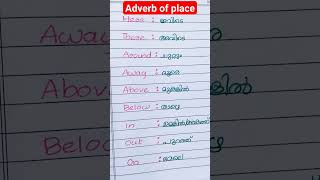 Adverb of place
Here : ഇവിടെ
There : അവിടെ
Around : ചുറ്റും
Away : ദൂരെ
Above : മുകളിൽ
Below : താഴെ
In :
Out : പുറത്ത്
On : മേലെ